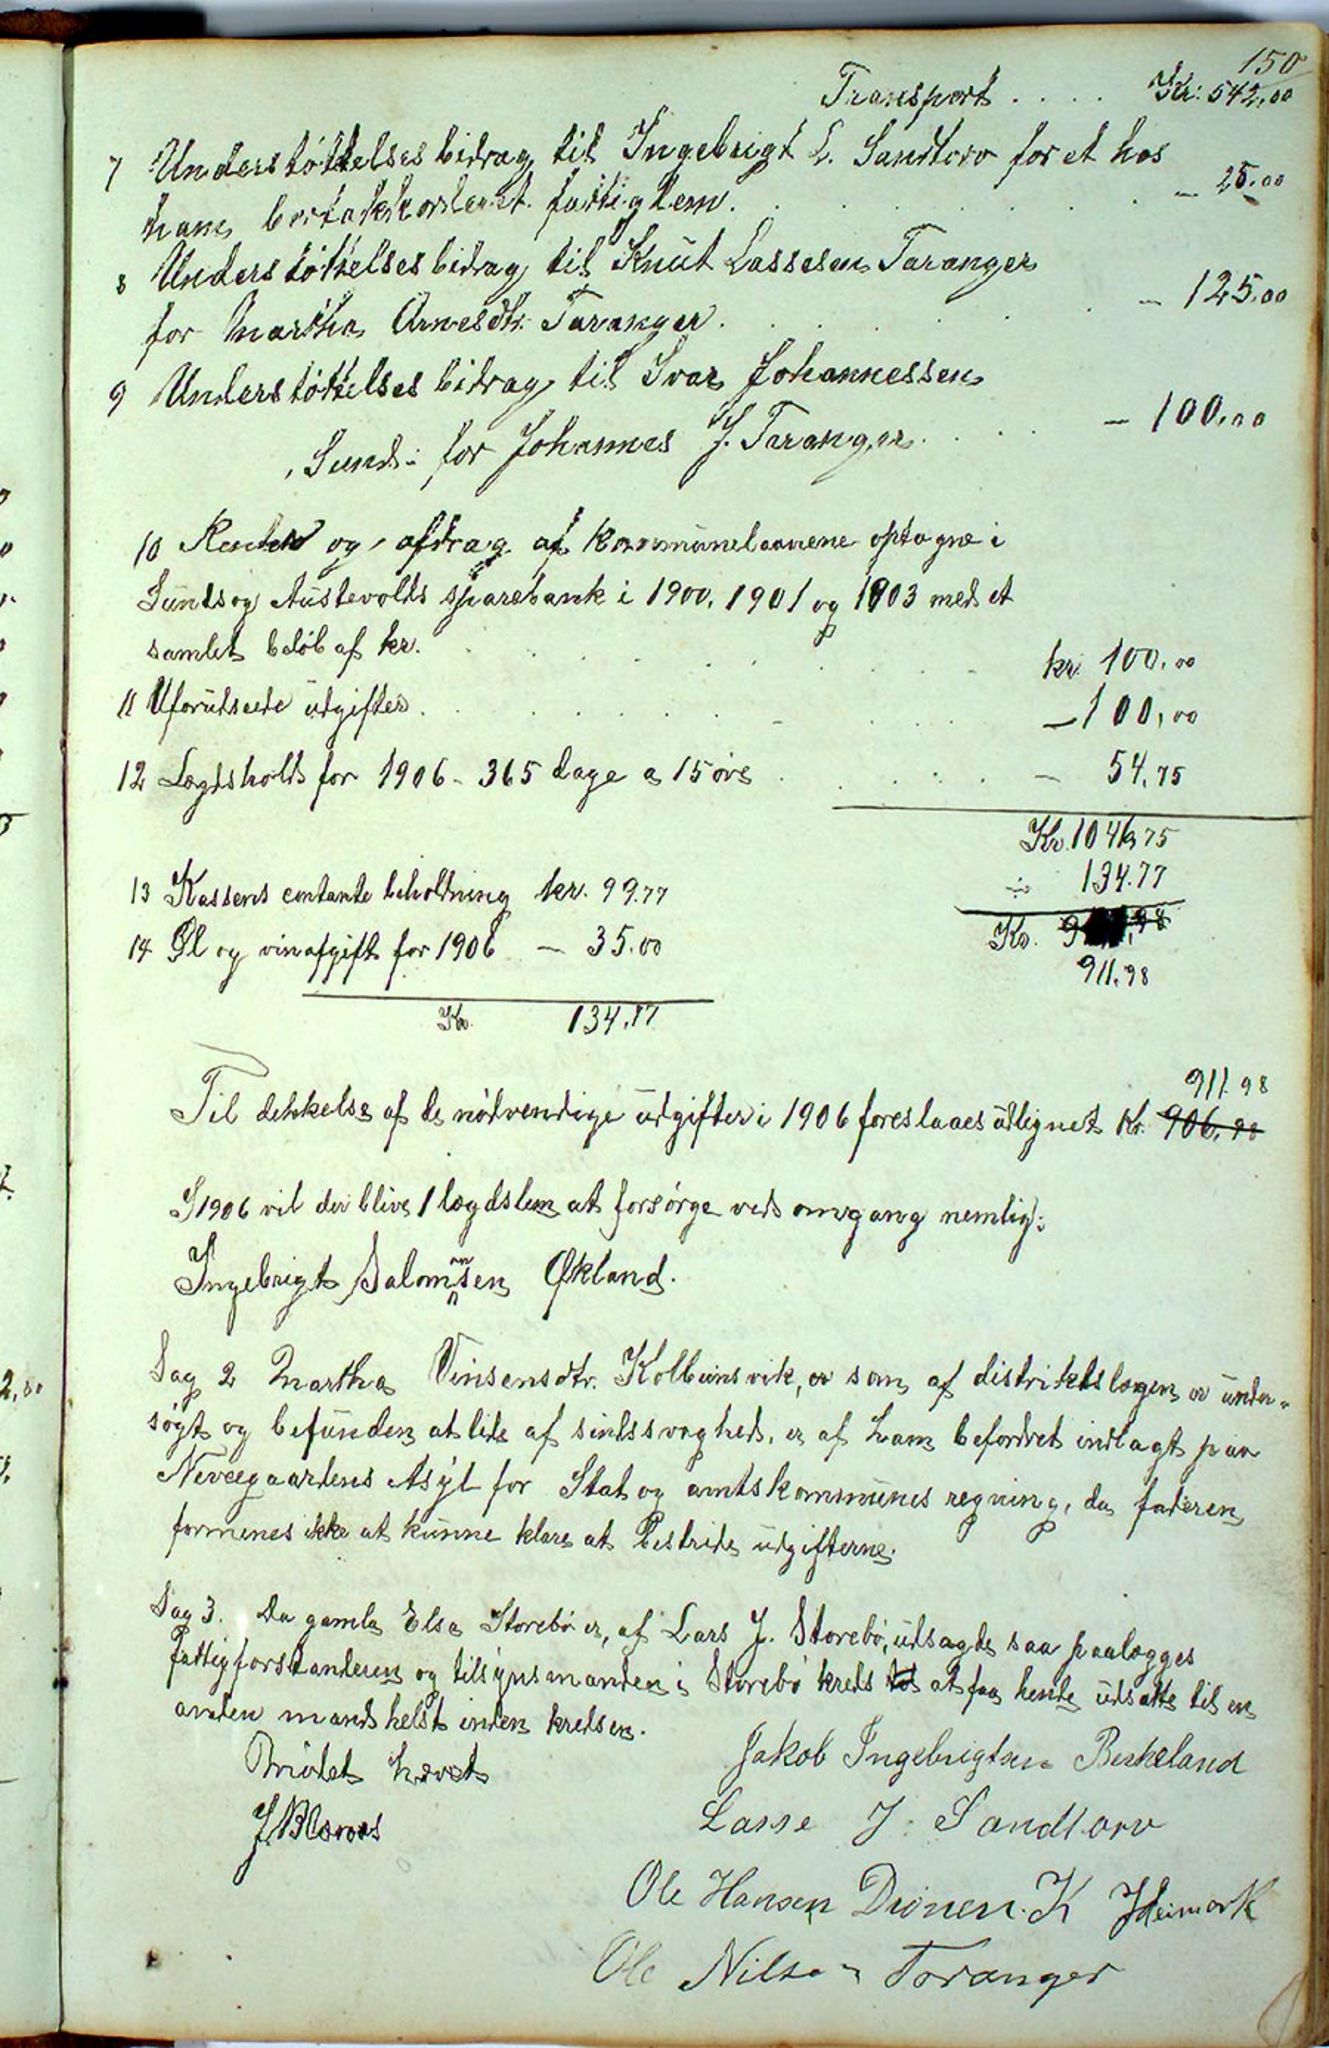 150
Transport . . . . Kr: 542,00
7 Understøttelsesbidrag til Ingebrigt L. Sandtorv for et hos
ham bortakkorderet fattiglem. . . . . . . . — 25,00
8 Understøttelsesbidrag til Knut Lassesen Taranger
for Martha Arnesdtr. Taranger. . . . . . . — 125,00
9 Understøttelsesbidrag til Ivar Johannessen
Sund: for Johannes J. Taranger. . . . — 100,00
10 Renter og afdrag af kommunelaanene optagne i
Sunds og Austevolds sparebank i 1900, 1901 og 1903 med et
samlet beløb af kr. . . . . . . . kr. 100,00
11 Uforudseede udgifter. . . . . . . — 100,00
12 Lægdshold for 1906 - 365 dage a 15 øre . . . . — 54,75
Kr. 1046,75
13 Kassens contante beholdning kr. 99.77 ÷ 134.77
14 Øl og vinafgift for 1906 — 35.00 Kr.
911,98
Kr. 134,77
911.98
Til dekkelse af de nødvendige udgifter i 1906 foreslaaes udlignet Kr. 906,98
I 1906 vil der blive 1 lægdslem at forsørge ved omgang nemlig:
Ingebrigt Salomonsen Økland.
Sag 2 Martha Vinsensdtr. Kolbeinsvik, er som af distriktslægen er under-
søgt og befunden at lide af sindssvaghed, er af ham befordret indlagt paa
Neveegaardens Asyl for Stat og amtskommunes regning, da faderen
formenes ikke at kunne klare at bestride udgifterne.
Sag 3. Da gamle Else Storebø er, af Lars J. Storebø, udsagde saa paalægges
Fattigforstanderen og tilsynsmanden i Storebø kreds at faa hende udsatte til en
anden mand helst inden kredsen.
Mødet hævet
Jakob Ingebrigtsen Birkeland
Lasse J. Sandtorv
Ole Hansen Drønen. K J Heimark
Ole Nilsen Toranger